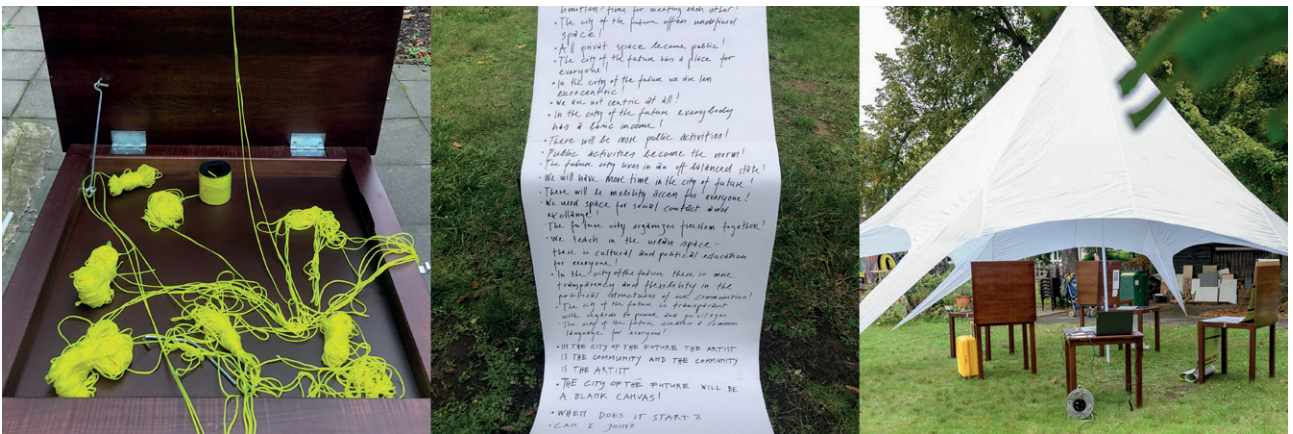 limitless time for meeting each other!
• The city of the future offers undefined
space!
• All privat space become public!
• The city of the future has a place for
everyone!
• In the city of the future we are less
eurocentric!
• We are not centric at all!
• In the city of the future everybody
has a basic income!
• There will be more public activities!
• Public activities become the norm!
• The future city lives in an off balanced state!
• We will have more time in the city of future!
• There will be mobility access for everyone!
• We need space for social contact and
exchange!
• The future city organizes freedom together!
• We teach in the urban space –
there is cultural and political education
for everyone!
• In the city of the future there is more
transparency and flexibility in the
political structures of our communities!
• The city of the future is transparent
with regards to power and privileges
• The city of the future creates a common
language for everyone!
• IN THE CITY OF THE FUTURE THE ARTIST
IS THE COMMUNITY AND THE COMMUNITY
IS THE ARTIST
• THE CITY OF THE FUTURE WILL BE
A BLANK CANVAS!
• WHEN DOES IT START?
• CAN I JOIN?